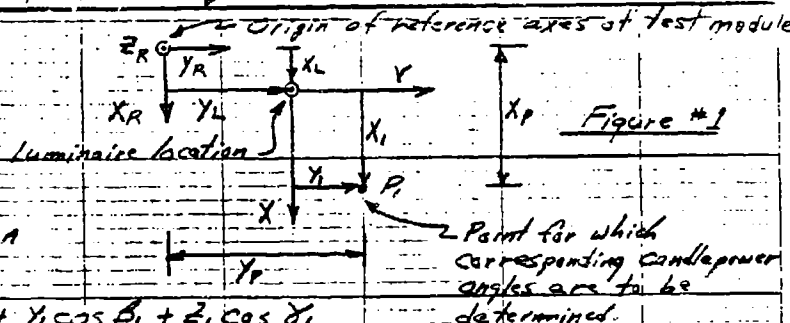 Origin of reference axes at test module
Z_R
Y_R
X_L
X_R
Y_L
Y
X_1
X_P
Figure #1
Luminaire location
Y_1
P_1
X
A
Y_P
Point for which
corresponding candlepower
angles are to be
determined.
+ Y_1 cos β_1 + Z_1 cos γ_1